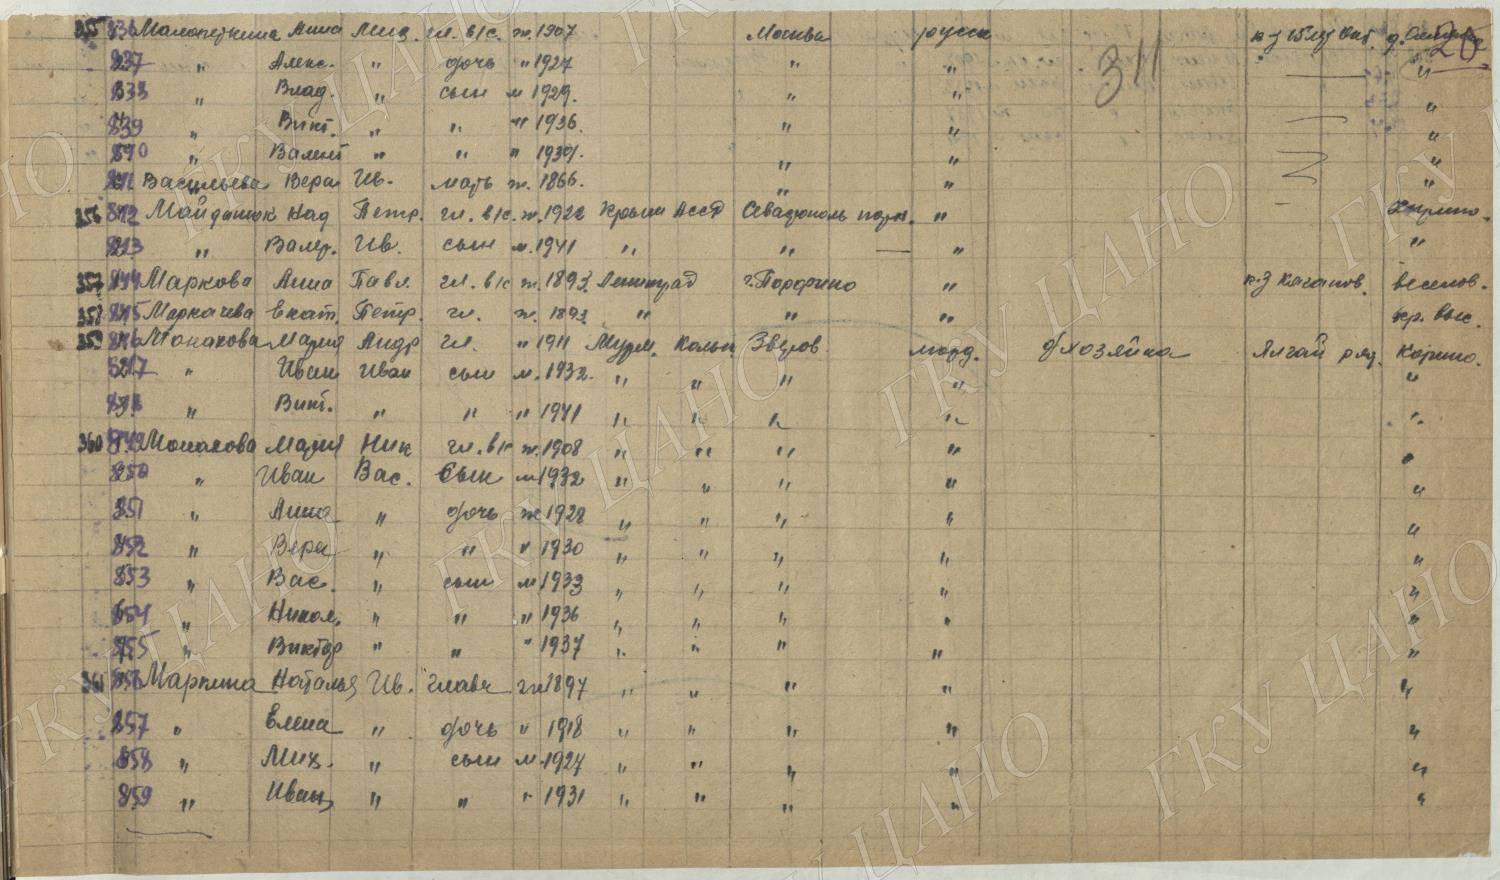 355 836 Анна гл. в/с. ж. 1907 Москва русск 311 20
837 " Алекс. " дочь " 1927 " "
838 " Влад. " сын м 1929. " " "
839 " Викт. " " " 1936. " " "
840 " Валент " " " " " "
841 Васильева Вера Ив. мать ж. 1866. " " "
356 842 Над Петр. гл. в/с. ж. 1922 Крым АССР "
843 " Валер. Ив. сын м. 1941 " " — " "
357 844 Маркова Анна Павл. гл. в/с ж. 1893. Ленинград " к-з Каганов. Веселов.
358 845 Екат. Петр. гл. ж. 1893. " " " Кр. Выс.
359 846 Монахова Мария Андр гл. " 1911 Мурм. Кольск Зверов. морд. д/хозяйка Корино.
847 " Иван Иван сын м. 1932. " " " " "
848 " Викт. " " " 1941 " " " " "
360 849 Монахова Мария Ник гл. в/с ж. 1908 " " " " "
850 " Иван Вас. Сын м 1932 " " " " "
851 " Анна " дочь ж 1928 " " " " "
852 " Вера " " " 1930 " " " " "
853 " Вас. " сын м 1933 " " " " "
854 " Никол. " " " 1936 " " " " "
855 " Виктор " " " 1937 " " " " "
361 856 Наталья Ив. ж 1897 " " " " "
857 " Елена " дочь " 1918 " " " " "
858 " Мих. " сын м. 1927 " " " " "
859 " Иван " " " 1931 " " " " "
ГКУ ЦАНО